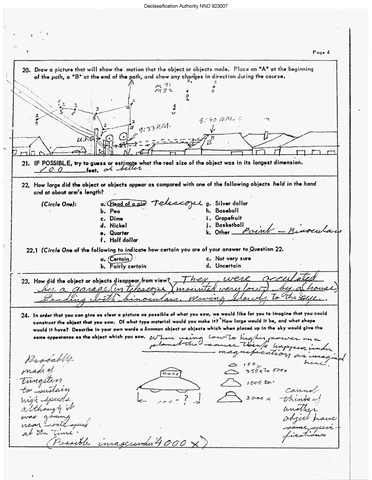 Declassification Authority NND 923007
Page 4
20. Draw a picture that will show the motion that the object or objects made. Place an "A" at the beginning
of the path, a "B" at the end of the path, and show any changes in direction during the course.
9:33 P.M.
21. IF POSSIBLE, try to guess or estimate what the real size of the object was in its longest dimension.
100 feet, or better
22. How large did the object or objects appear as compared with one of the following objects held in the hand
and at about arm's length?
(Circle One): a. Head of a pin Telescope g. Silver dollar
b. Pea h. Baseball
c. Dime i. Grapefruit
d. Nickel j. Basketball
e. Quarter k. Other Point - Binoculars
f. Half dollar
22.1 (Circle One of the following to indicate how certain you are of your answer to Question 22.
a. Certain c. Not very sure
b. Fairly certain d. Uncertain
23. How did the object or objects disappear from view? They were occulated
by a garage in telescope (mounted very low) by a house
standing with binoculars. moving slowly to the
24. In order that you can give as clear a picture as possible of what you saw, we would like for you to imagine that you could
construct the object that you saw. Of what type material would you make it? How large would it be, and what shape
would it have? Describe in your own words a common object or objects which when placed up in the sky would give the
same appearance as the object which you saw.
When using low to higher power on a
planet the same thing happens under
magnification as imagined
here.
Probably
made of
tungsten
to sustain
high speeds
although it
was going
near
at the time.
100 - ?
1000 x
2000 x
cannot
think of
another
object have
same speci-
fications
(Possible image under 4000 x)